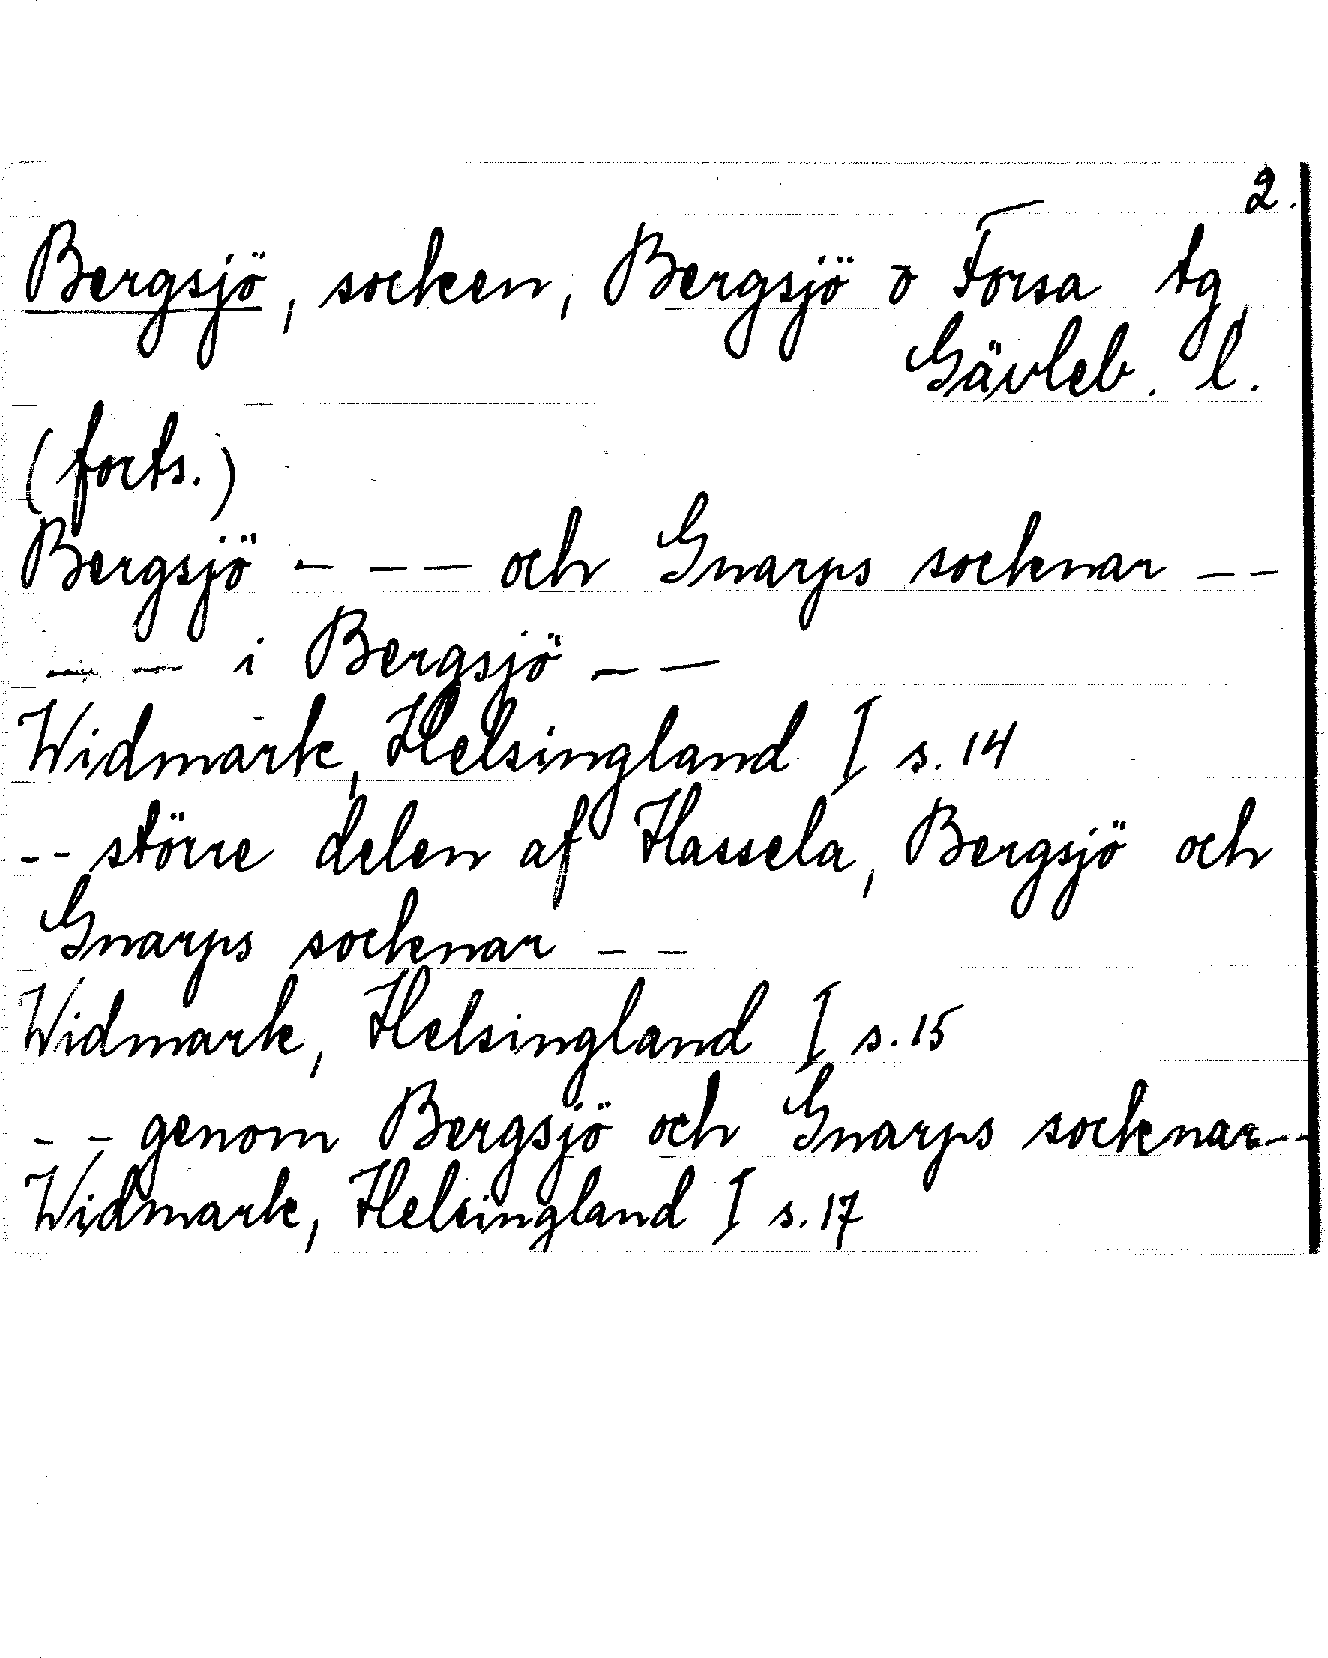 2.
Bergsjö, socken, Bergsjö o Forsa tg,
Gävleb. l.
(forts.)
Bergsjö - - - och Gnarps socknar - -
- - i Bergsjö - -
Widmark, Helsingland I s. 14
- - större delen af Hassela, Bergsjö och
Gnarps socknar - -
Widmark, Helsingland I s. 15
- - genom Bergsjö och Gnarps socknar - -
Widmark, Helsingland I s. 17